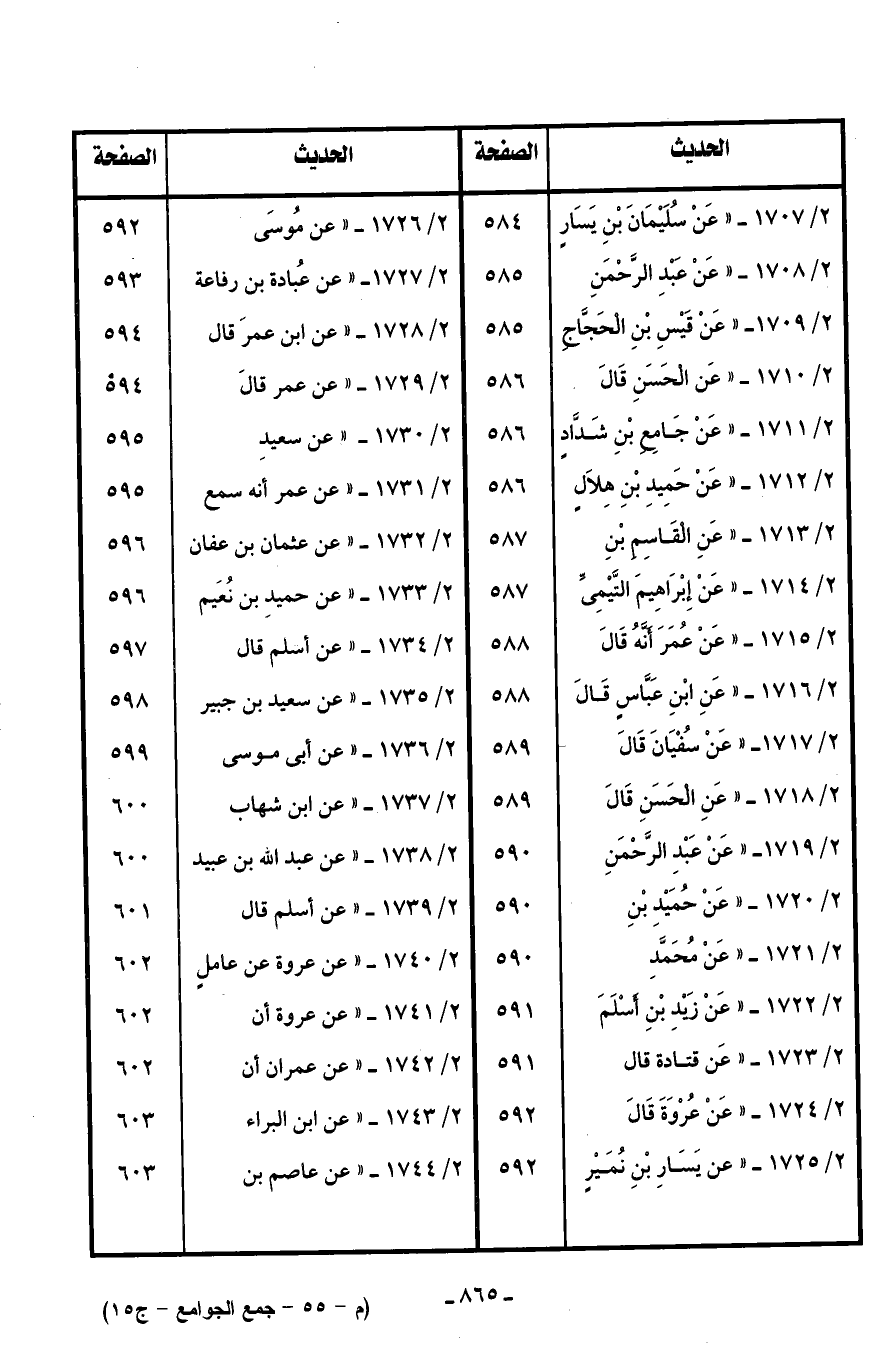 الحديث الصفحة الحديث الصفحة
٢/ ١٧٠٧ ـ « عَنْ سُلَيْمَانَ بْنِ يَسَارٍ ٥٨٤ ٢/ ١٧٢٦ ـ « عن مُوسَى ٥٩٢
٢/ ١٧٠٨ ـ « عَنْ عَبْدِ الرَّحْمَنِ ٥٨٥ ٢/ ١٧٢٧ـ « عن عُبادة بن رفاعة ٥٩٣
٢/ ١٧٠٩ـ « عَنْ قَيْسِ بْنِ الْحَجَّاجِ ٥٨٥ ٢/ ١٧٢٨ ـ « عن ابن عمرَ قال ٥٩٤
٢/ ١٧١٠ ـ « عَنِ الْحَسَنِ قَالَ ٥٨٦ ٢/ ١٧٢٩ ـ « عن عمر قالَ ٥٩٤
٢/ ١٧١١ ـ « عَنْ جَـامِعِ بْنِ شَـدَّادٍ ٥٨٦ ٢/ ١٧٣٠ ـ « عن سعيدِ ٥٩٥
٢/ ١٧١٢ ـ « عَنْ حَمِيدِ بْنِ هِلاَلٍ ٥٨٦ ٢/ ١٧٣١ ـ « عن عمر أنه سمع ٥٩٥
٢/ ١٧١٣ ـ « عَنِ الْقَـاسِمِ بْنِ ٥٨٧ ٢/ ١٧٣٢ ـ « عن عثمان بن عفان ٥٩٦
٢/ ١٧١٤ ـ « عَنْ إِبْرَاهِيمَ التَّيْمِىِّ ٥٨٧ ٢/ ١٧٣٣ ـ « عن حميدِ بن نُعَيم ٥٩٦
٢/ ١٧١٥ ـ « عَنْ عُمَرَ أَنَّهُ قَالَ ٥٨٨ ٢/ ١٧٣٤ ـ « عن أسلم قال ٥٩٧
٢/ ١٧١٦ ـ « عَنِ ابْنِ عَبَّاسٍ قَـالَ ٥٨٨ ٢/ ١٧٣٥ ـ « عن سعيد بن جبير ٥٩٨
٢/ ١٧١٧ـ « عَنْ سُفْيَانَ قَالَ ٥٨٩ ٢/ ١٧٣٦ ـ « عن أبى مـوسى ٥٩٩
٢/ ١٧١٨ ـ « عَنِ الْحَسَنِ قَالَ ٥٨٩ ٢/ ١٧٣٧ ـ « عن ابن شهاب ٦٠٠
٢/ ١٧١٩ـ « عَنْ عَبْدِ الرَّحْمَنِ ٥٩٠ ٢/ ١٧٣٨ ـ « عن عبد الله بن عبيد ٦٠٠
٢/ ١٧٢٠ ـ « عَنْ حُمَيْدِ بْنِ ٥٩٠ ٢/ ١٧٣٩ ـ « عن أسلم قال ٦٠١
٢/ ١٧٢١ ـ « عَنْ مُحَمَّدِ ٥٩٠ ٢/ ١٧٤٠ ـ « عن عروة عن عاملٍ ٦٠٢
٢/ ١٧٢٢ ـ « عَنْ زَيْدِ بْنِ أَسْلَمَ ٥٩١ ٢/ ١٧٤١ ـ « عن عروة أن ٦٠٢
٢/ ١٧٢٣ ـ « عَن قتـادة قال ٥٩١ ٢/ ١٧٤٢ ـ « عن عمران أن ٦٠٢
٢/ ١٧٢٤ ـ « عَنْ عُرْوَةَ قَالَ ٥٩٢ ٢/ ١٧٤٣ ـ « عن ابن البراء ٦٠٣
٢/ ١٧٢٥ ـ « عن يَسَـارِ بْنِ نُمَـيْرٍ ٥٩٢ ٢/ ١٧٤٤ ـ « عن عاصم بن ٦٠٣
ـ ٨٦٥ ـ
(م - ٥٥ - جمع الجوامع - ج١٥)